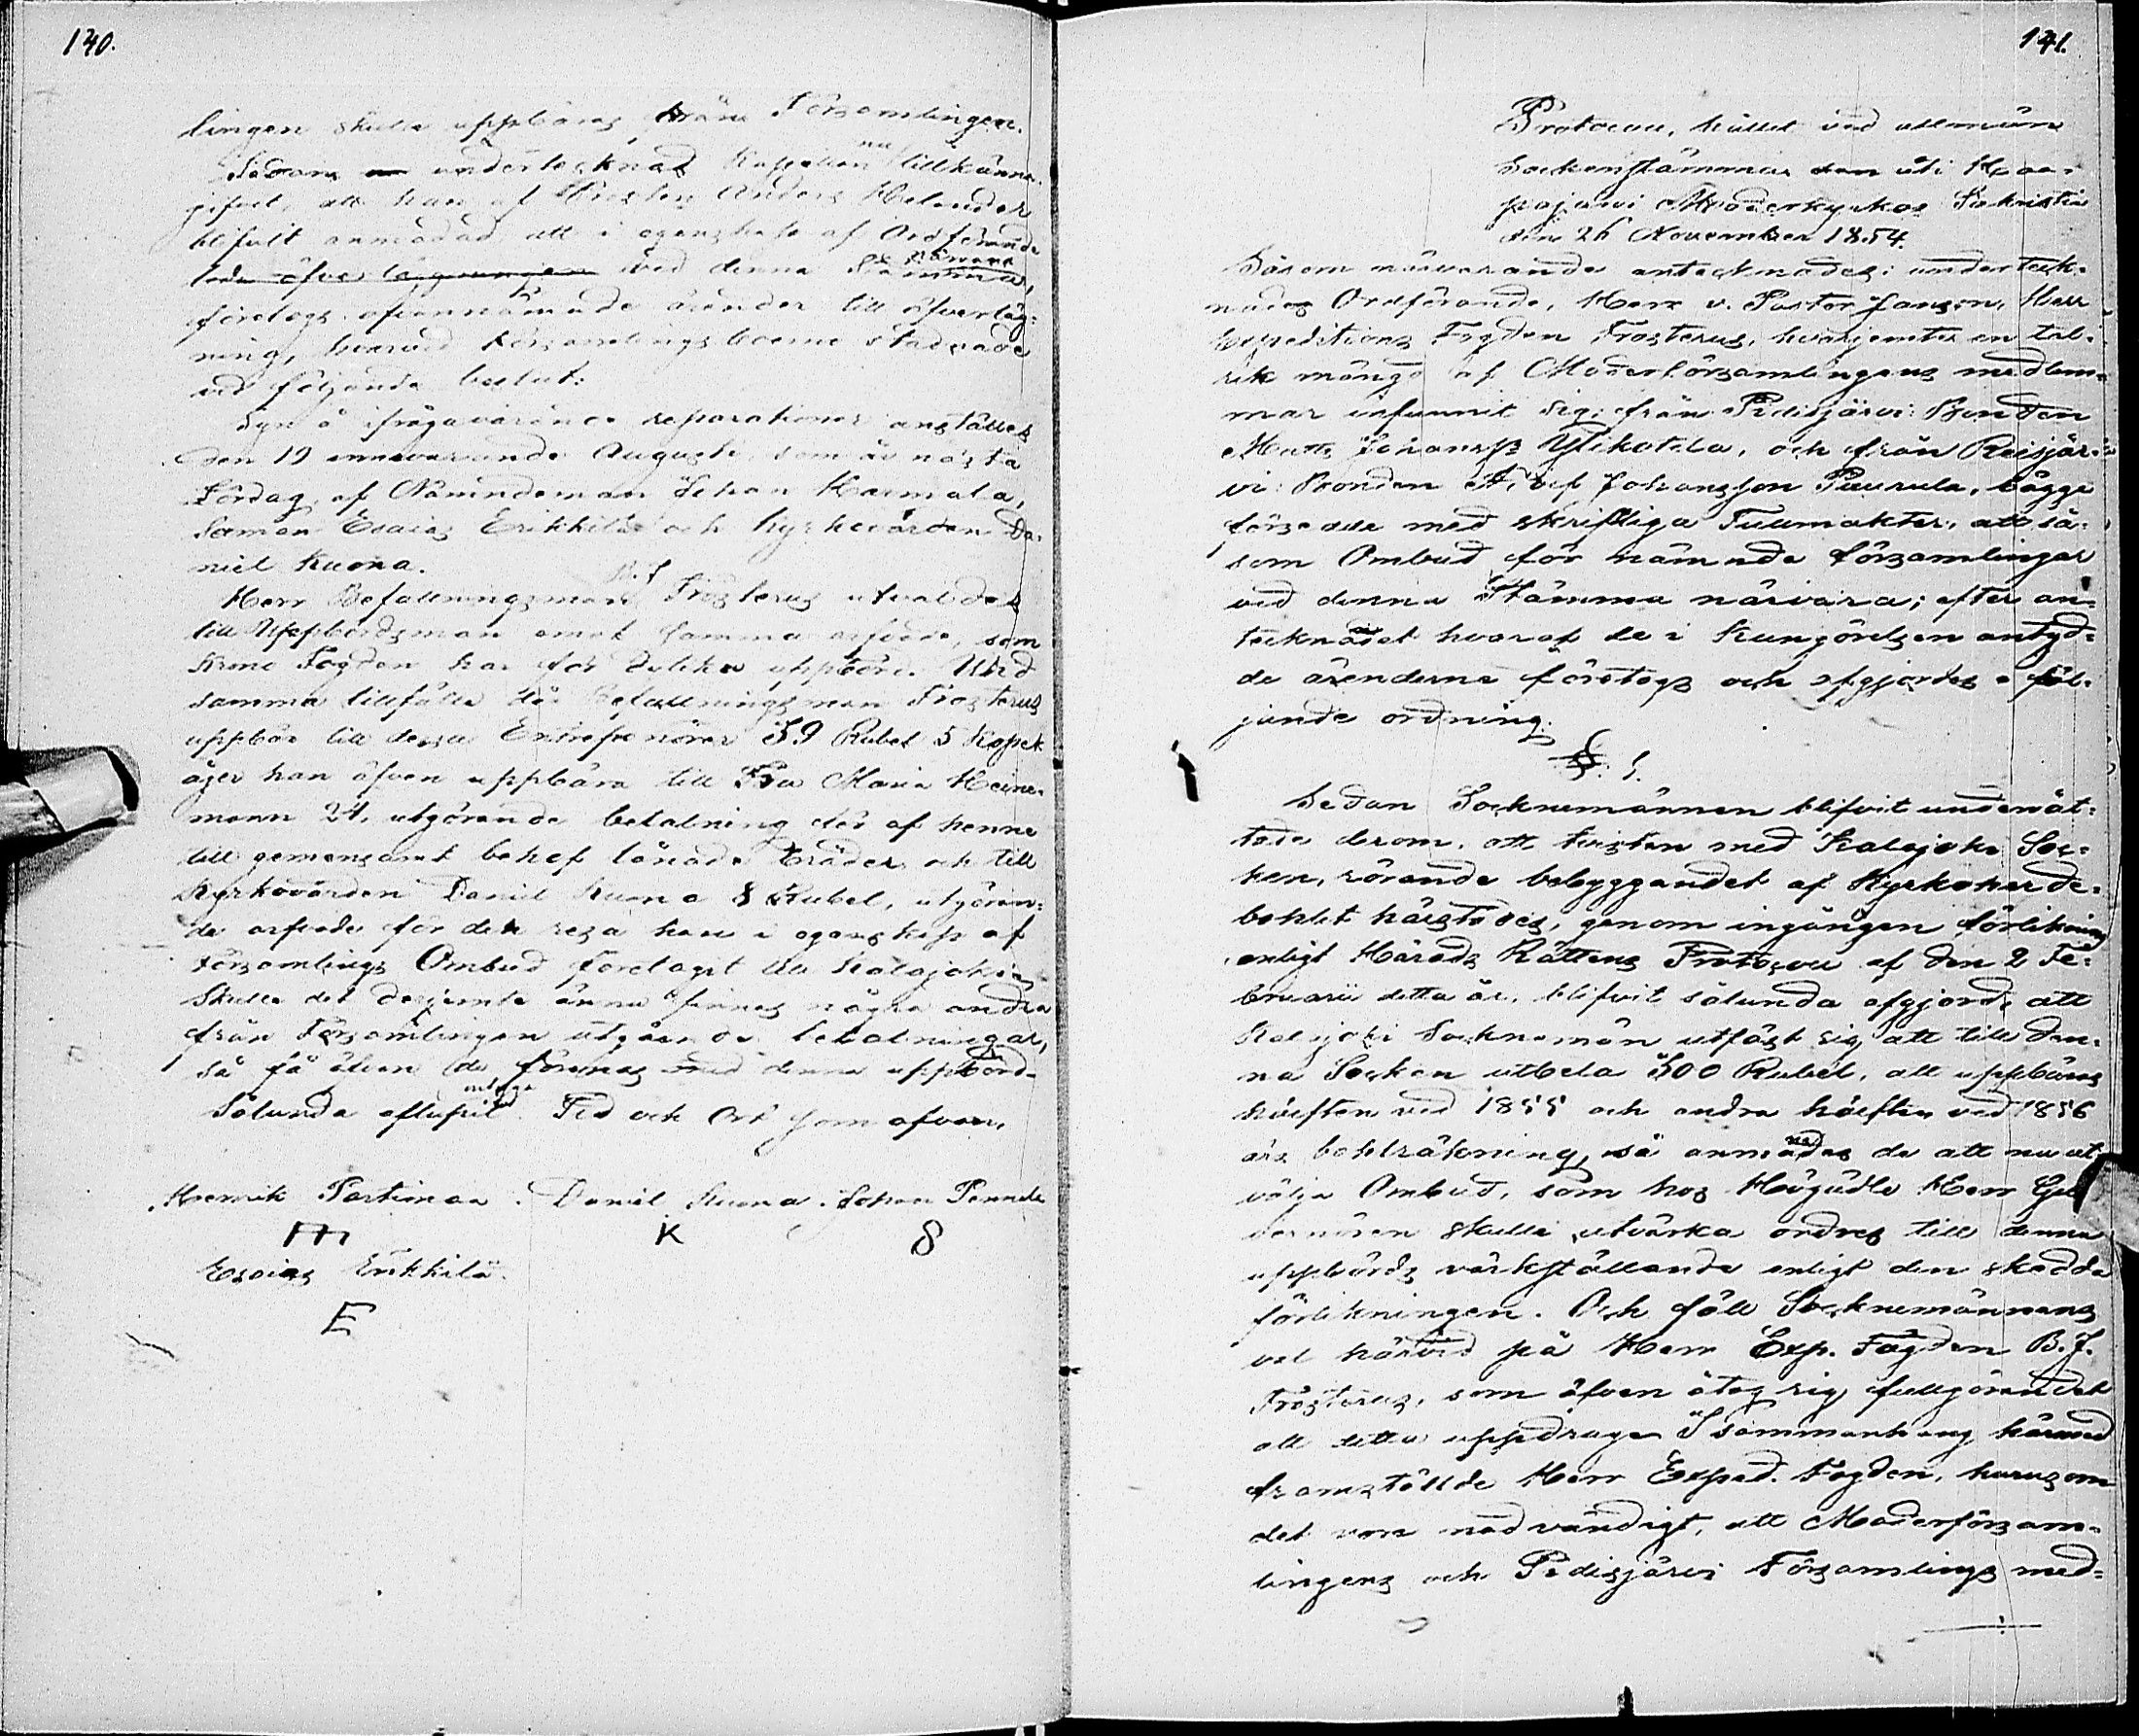 140.
lingen skulle uppbäras från Församlingen.
Sedan undertecknad Kapellan nu tillkänna-
gifvit, att han af Prosten Anders Helander
blifvit anmodad att i egenskap af Ordförande
leda öfverläggningen vid denna Stämma närvara,
företogs ofvannämnde ärender till öfverläg-
ning, hvarvid Församlingsboerne stadnade
vid följande beslut:
Syn å ifrågavarande reparationer anställes
den 19 innevarande Augusti, som är nästa
Lördag, af Nämndeman Johan Harmala,
Sexman Esaias Erikkilä och Kyrkovärden Da-
niel Kuona.
Herr Befallningsman B. J. Frosterus utvaldes
till Uppbördsman emot samma arfvode, som
Krono Fogden har för dylika uppbörd. Vid
samma tillfälle då Befallningsman Frosterus
uppbär till dessa Entreprenörer 39 Rubel 5 Kopek
äger han äfven uppbära till Fru Maria Heine-
mann 24, utgörande betalning för af henne
till gemensamt behof lånade bräder, och till
Kyrkovärden Daniel Kuona 8 Rubel, utgöran-
de arfvode för den resa han i egenskap af
Församlings Ombud företagit till Kalajoki;
Skulle det desjemte ännu finnas några andra
från Församlingen utgående betalningar,
så få äfven de förenas med denna uppbörd.
Sålunda aflupit, intyga Tid och Ort som ofvan.
Henrik Partimaa. Daniel Kuona. Johan Pennala
m K 8
Esaias Erikkilä.
E
141.
Protocoll, hållet vid allmän
Sockenstämma uti Haa-
pajärvi Moderkyrkas Sakristia
den 26 November 1854.
Såsom närvarande antecknades: underteck-
nades Ordförande, Herr v. Pastor Janson, Herr
Expeditions Fogden Frosterus, hvarjemte en tal-
rik mängd af Moderförsamlingens medlem-
mar infunnit sig; från Pidisjärvi: Bonden
Matts Johansson Ylikotila, och från Reisjär-
vi: Bonden Adolf Johansson Paurula, bägge
försedde med skriftliga Fullmakter, att så-
som Ombud för nämnde församlingar
vid denna Stämma närvara; efter an-
tecknandet hvaraf de i Kungörelsen antyd-
de ärenderne företogs och afgjordes i föl-
jande ordning.
§. 1.
Sedan Socknemännen blifvit underrät-
tade derom, att tvisten med Kalajoki Soc-
ken, rörande bebyggandet af Kyrkoherde-
bohlet härstädes, genom ingången förlikning
enligt Härads Rättens Protocoll af den 2 Fe-
bruarii detta år, blifvit sålunda afgjord, att
Kalajoki Socknemän utfäst sig att till den-
na Socken utbetala 300 Rubel, att uppbäras
hälften vid 1855 och andra hälften vid 1856
års bohlräkning, så anmodades de att nu ut-
välja Ombud, som hos Högädle Herr Gu-
vernören skulle utvärka ordres till denna
uppbörds värkställande enligt den skedda
förlikningen. Och föll Socknemännens
val härvid på Herr Exp. Fogden B. J.
Frosterus, som äfven åtog sig fullgörandet
af detta uppdrag. I sammanhang härmed
framställde Herr Exped. Fogden, hurusom
det vore nödvändigt, att Moderförsam-
lingens och Pidisjärvi Församlings med-